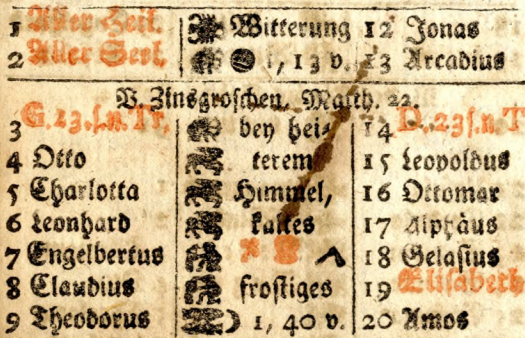 1 Aller Heil. Witterung 12 Jonas
2 Aller Seel. 1, 13 v. 13 Arcadius
V. Zinsgroschen, Matth. 22.
3 G. 23. s. n. Tr. bey hei- 14 D. 23 s. n T
4 Otto terem 15 Leopoldus
5 Charlotta Himmel, 16 Ottomar
6 Leonhard kaltes 17 Alphäus
7 Engelbertus 18 Gelasius
8 Claudius frostiges 19 Elisabeth
9 Theodorus 1, 40 v. 20 Amos